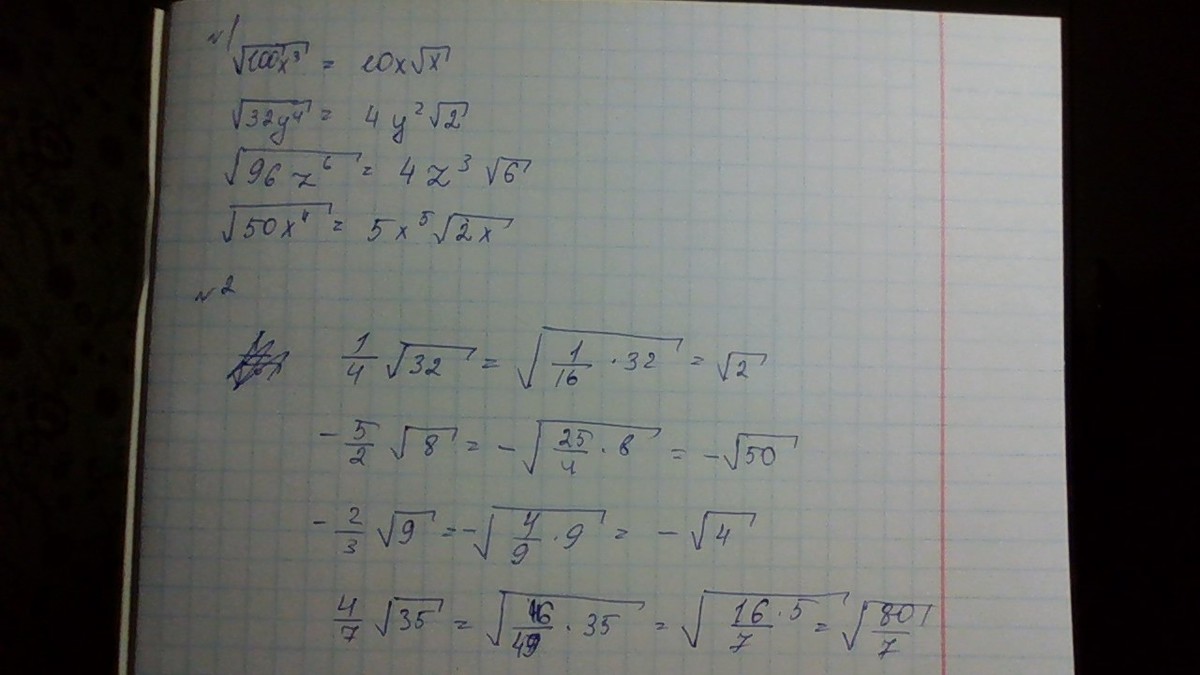 №1
√100x³ = 10x√x
√32y⁴ = 4y²√2
√96z⁶ = 4z³√6
√50x⁴ = 5x⁵√2x
№2
1/4 √32 = √(1/16 · 32) = √2
- 5/2 √8 = -√(25/4 · 8) = -√50
- 2/3 √9 = -√(4/9 · 9) = -√4
4/7 √35 = √(16/49 · 35) = √(16·5/7) = √(80/7)